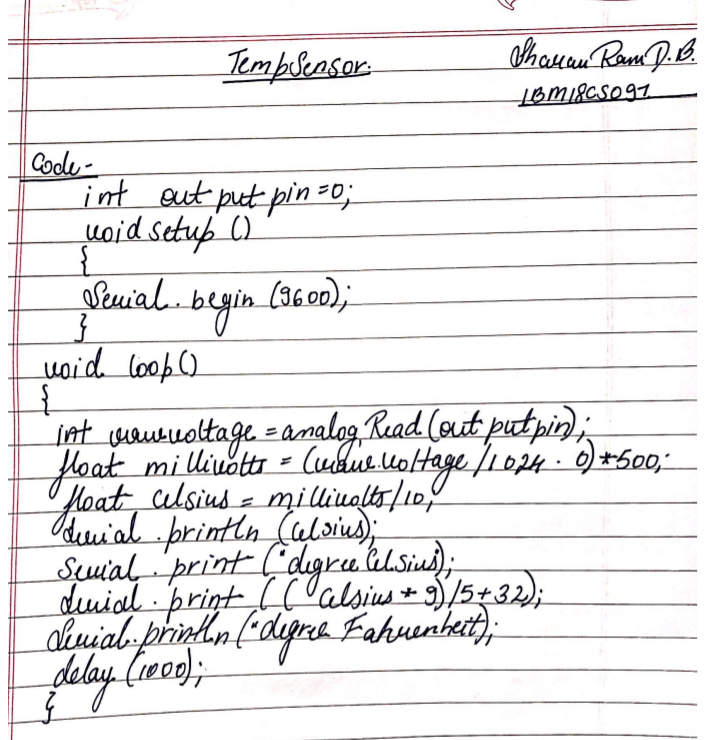 TempSensor.
Sharan Ram D.B.
1BM18CS091
Code-
int out put pin=0;
void setup ()
{
Serial. begin (9600);
}
void loop()
{
int voltage = analog Read (out put pin);
float millivolts = (voltage /1024 . 0)*500;
float celsius = millivolts/10;
Serial . println (celsius);
Serial . print ("degree Celsius);
Serial . print ( ( Celsius * 9) /5+32);
Serial. println ("degree Fahrenheit);
delay (1000);
}